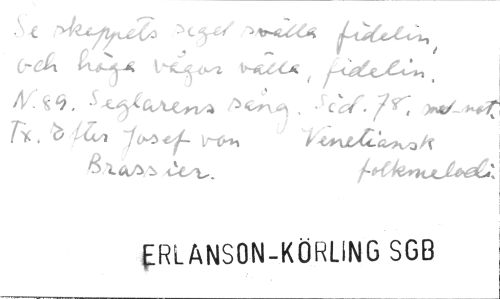 Se skeppets segel svälla fidelin,
och höga vågor välla, fidelin.
N.89. Seglarens sång. Sid. 78. mel-not.
Tx. Efter Josef von Venetiansk
Brassier. folkmelodi.
ERLANSON-KÖRLING SGB